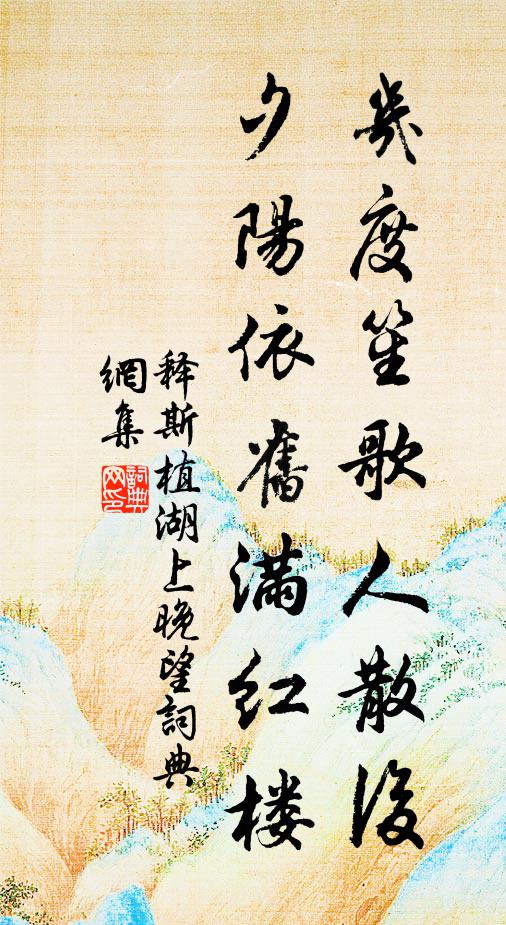 幾度笙歌人散後
夕陽依舊滿紅樓
释斯植湖上晚望詞典
網集
詞典网印